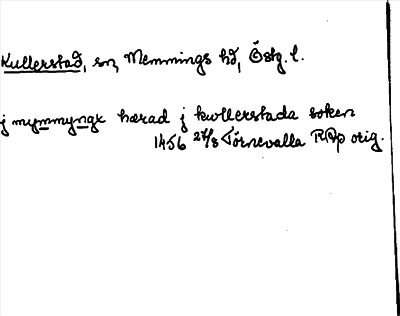 Kullerstad, sn, Memmings hd, Östg. l.
j mymmyngx hærad j kwllerstada soken
1456 27/8 Törnevalla RAp orig.